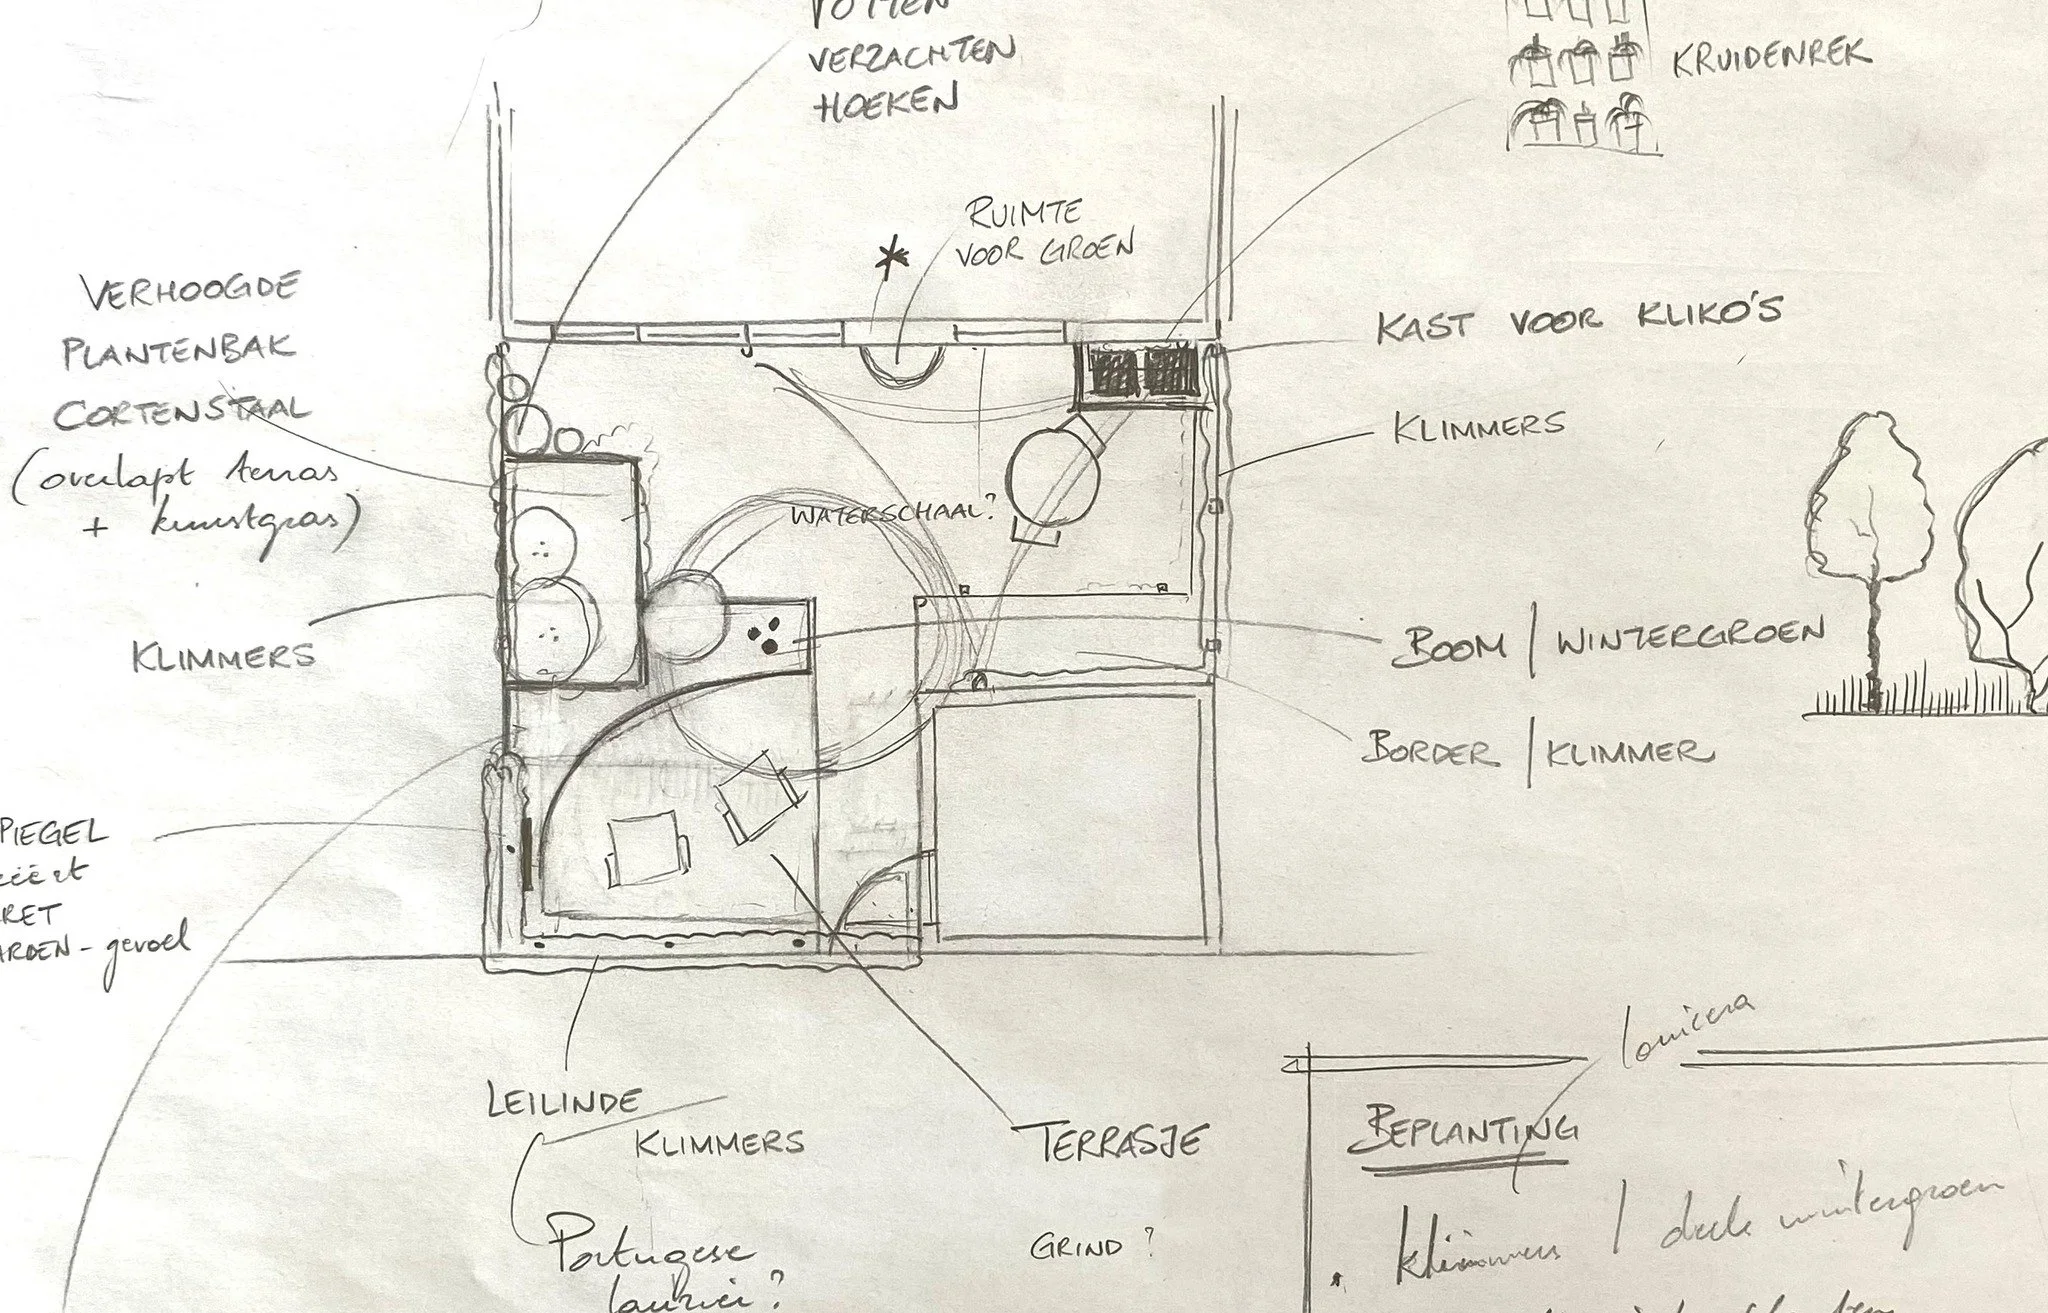 POTTEN
VERZACHTEN
HOEKEN
KRUIDENREK
RUIMTE
VOOR GROEN
VERHOOGDE
PLANTENBAK
CORTENSTAAL
(overlapt terras
+ kunstgras)
KAST VOOR KLIKO'S
KLIMMERS
WATERSCHAAL?
KLIMMERS
BOOM | WINTERGROEN
BORDER | KLIMMER
PIEGEL
RET
ARDEN-gevoel
LEILINDE
KLIMMERS
TERRASJE
Portugese
laurier?
GRIND?
lonicera
BEPLANTING
• klimmers / deels wintergroen